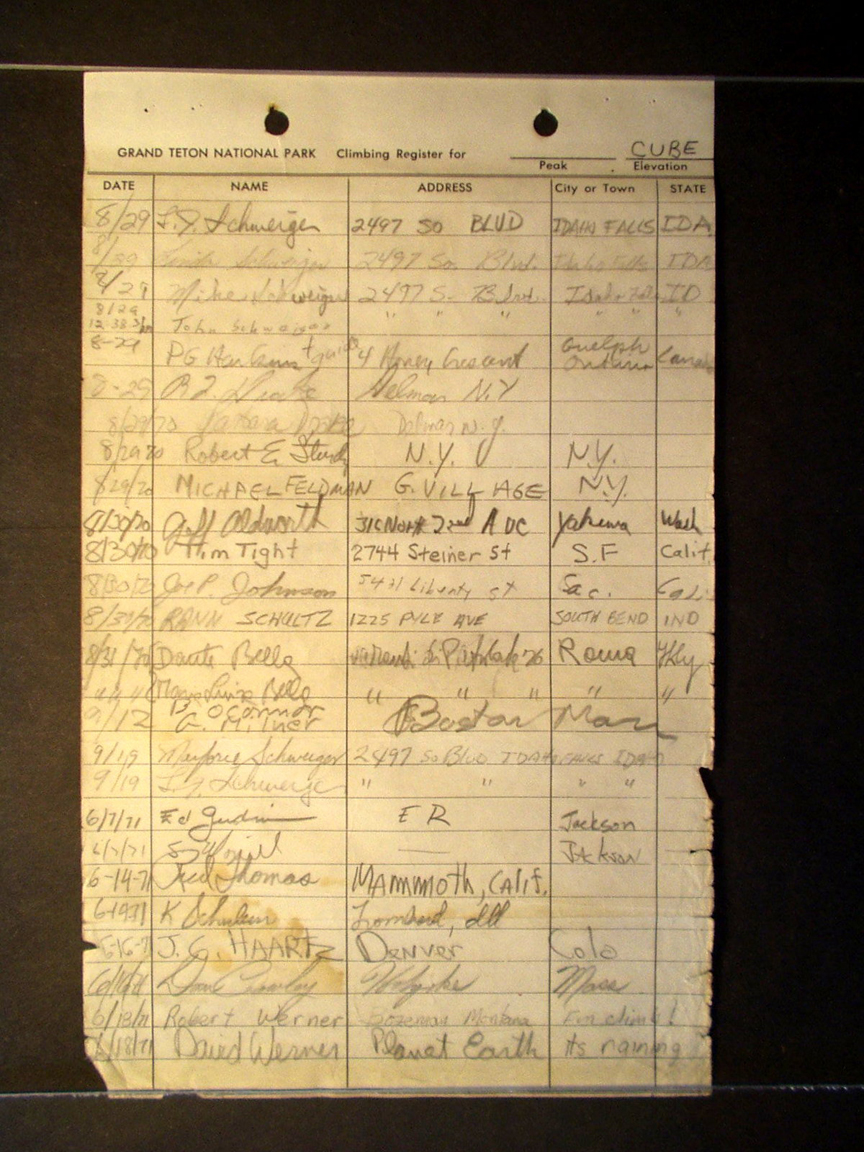 CUBE
GRAND TETON NATIONAL PARK Climbing Register for
Peak Elevation
DATE NAME ADDRESS City or Town STATE
8/29 L.J. Schweiger 2497 SO BLVD IDAHO FALLS IDA
8/29 Schweiger 2497 So. Blvd. Idaho Falls IDA
8/29 Mike Schweiger 2497 S. Blvd. Idaho Falls ID
8/29 " " " "
12:38 John Schweiger
8-29 Guelph
PG 4 Honey Crescent Ontario Canada
8-29 R J Drake Delmar N.Y
8/29/70 Barbara Drake Delmar N.Y.
8/29/70 Robert E. N.Y. N.Y.
8/29/70 MICHAEL FELDMAN G. VILLAGE N.Y.
8/30/70 Jeff Aldworth 316 North 22nd Ave Yakima Wash
8/30/70 Tim Tight 2744 Steiner St S.F Calif.
8/30/70 Joe P. Johnson 5431 Liberty st Sac. Cal.
8/30/70 RANN SCHULTZ 1225 PYLE AVE SOUTH BEND IND
8/31/70 Dante Bella Roma Italy
" " " Bella " " " " "
9/12 B. O'Connor Boston Mass
A. Milner
9/19 Marjorie Schweiger 2497 So BLVD IDAHO FALLS IDAHO
9/19 L.J. Schweiger " " " "
6/7/71 Ed E R Jackson
6/7/71 — Jackson
6-14-71 Fred Thomas MAMMOTH, CALIF.
6-19-71 K Lombard, Ill
6-16-7 J. G. HAARTZ Denver Colo
Dave Holyoke Mass
6/18/71 Robert Werner Bozeman Montana Fun climb!
6/18/71 David Werner Planet Earth its raining